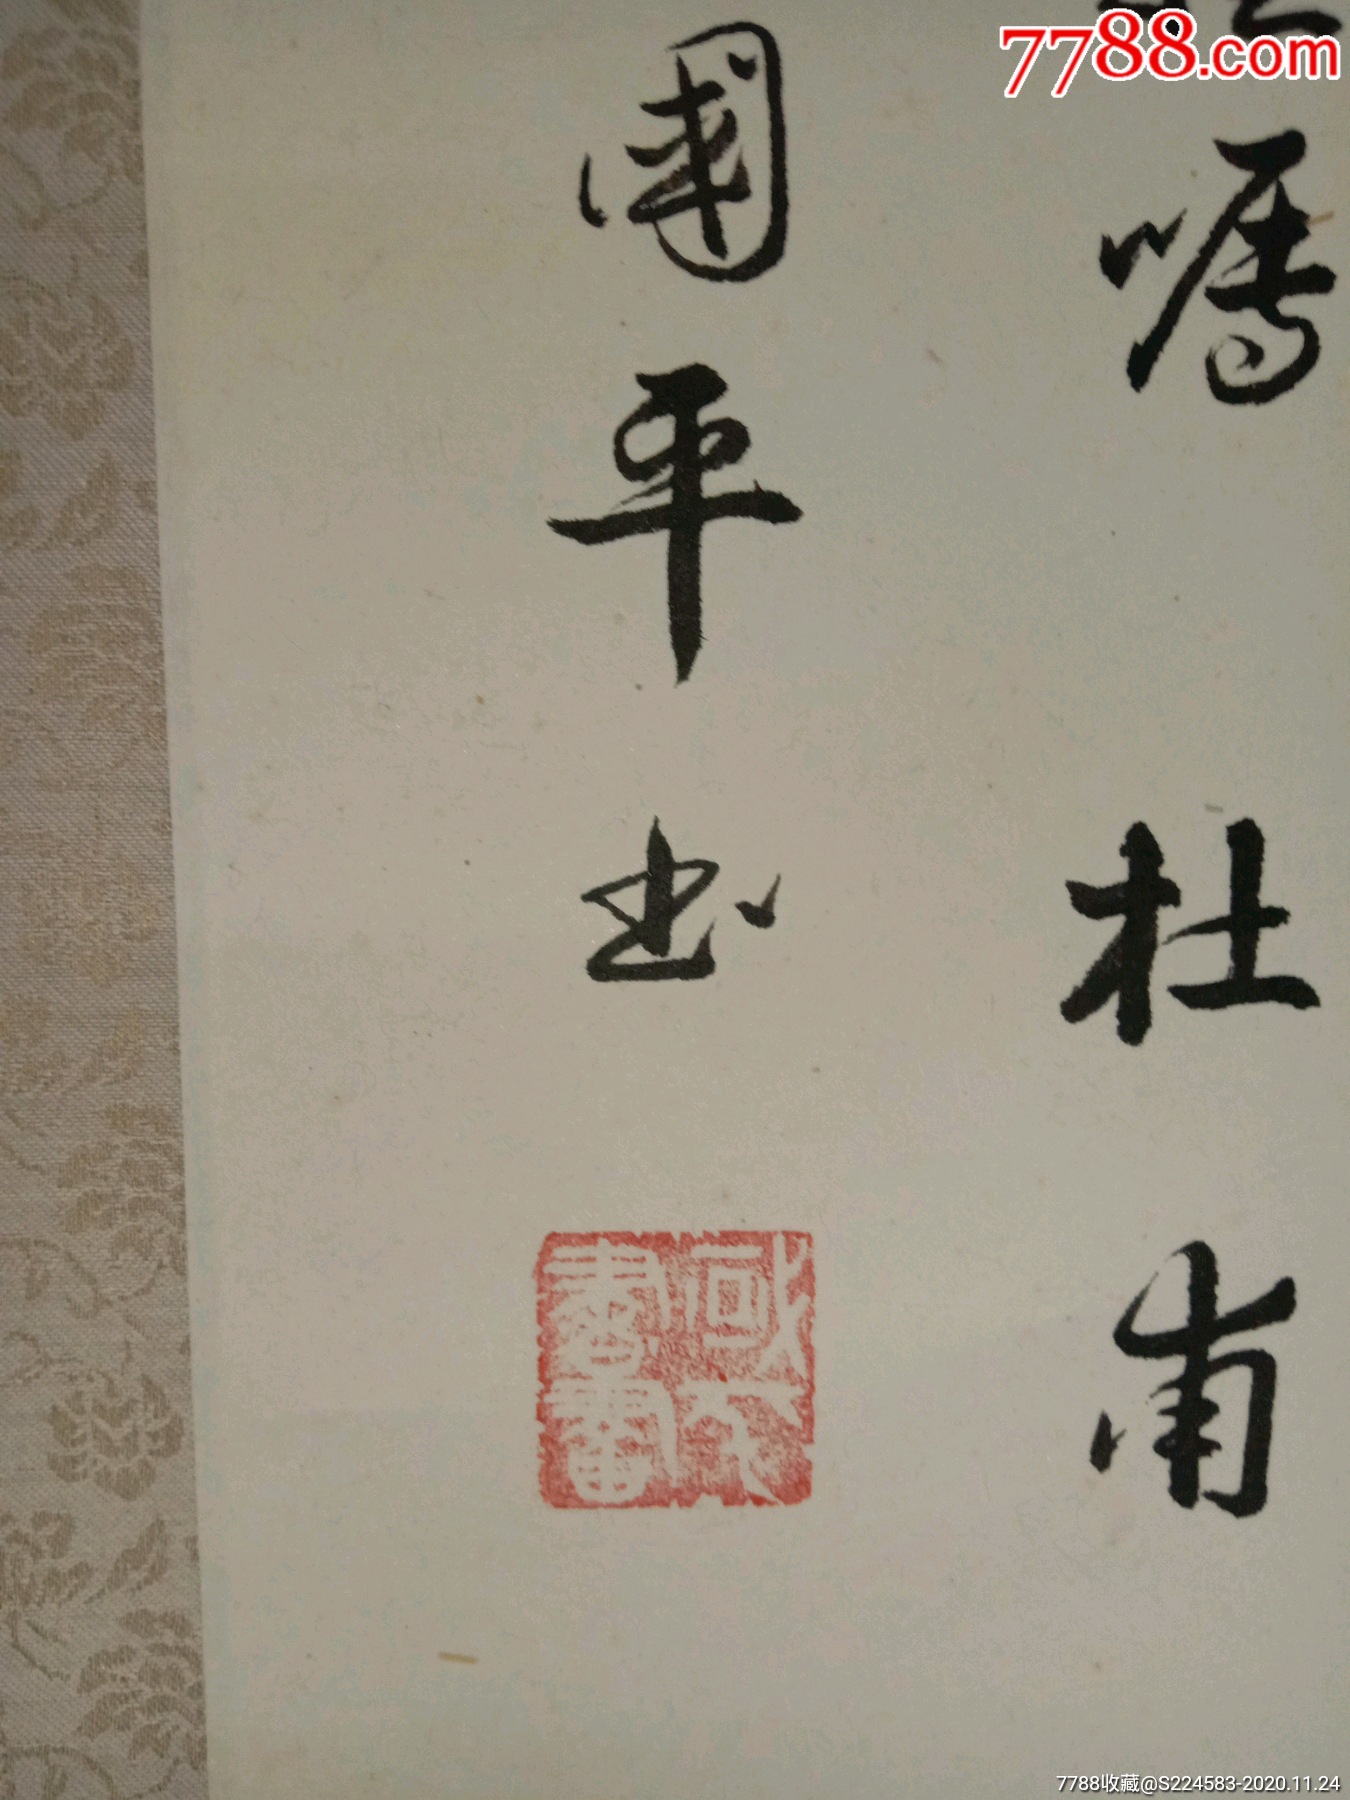 7788.com
嘱
杜甫
國平书
7788收藏@S224583-2020.11.24